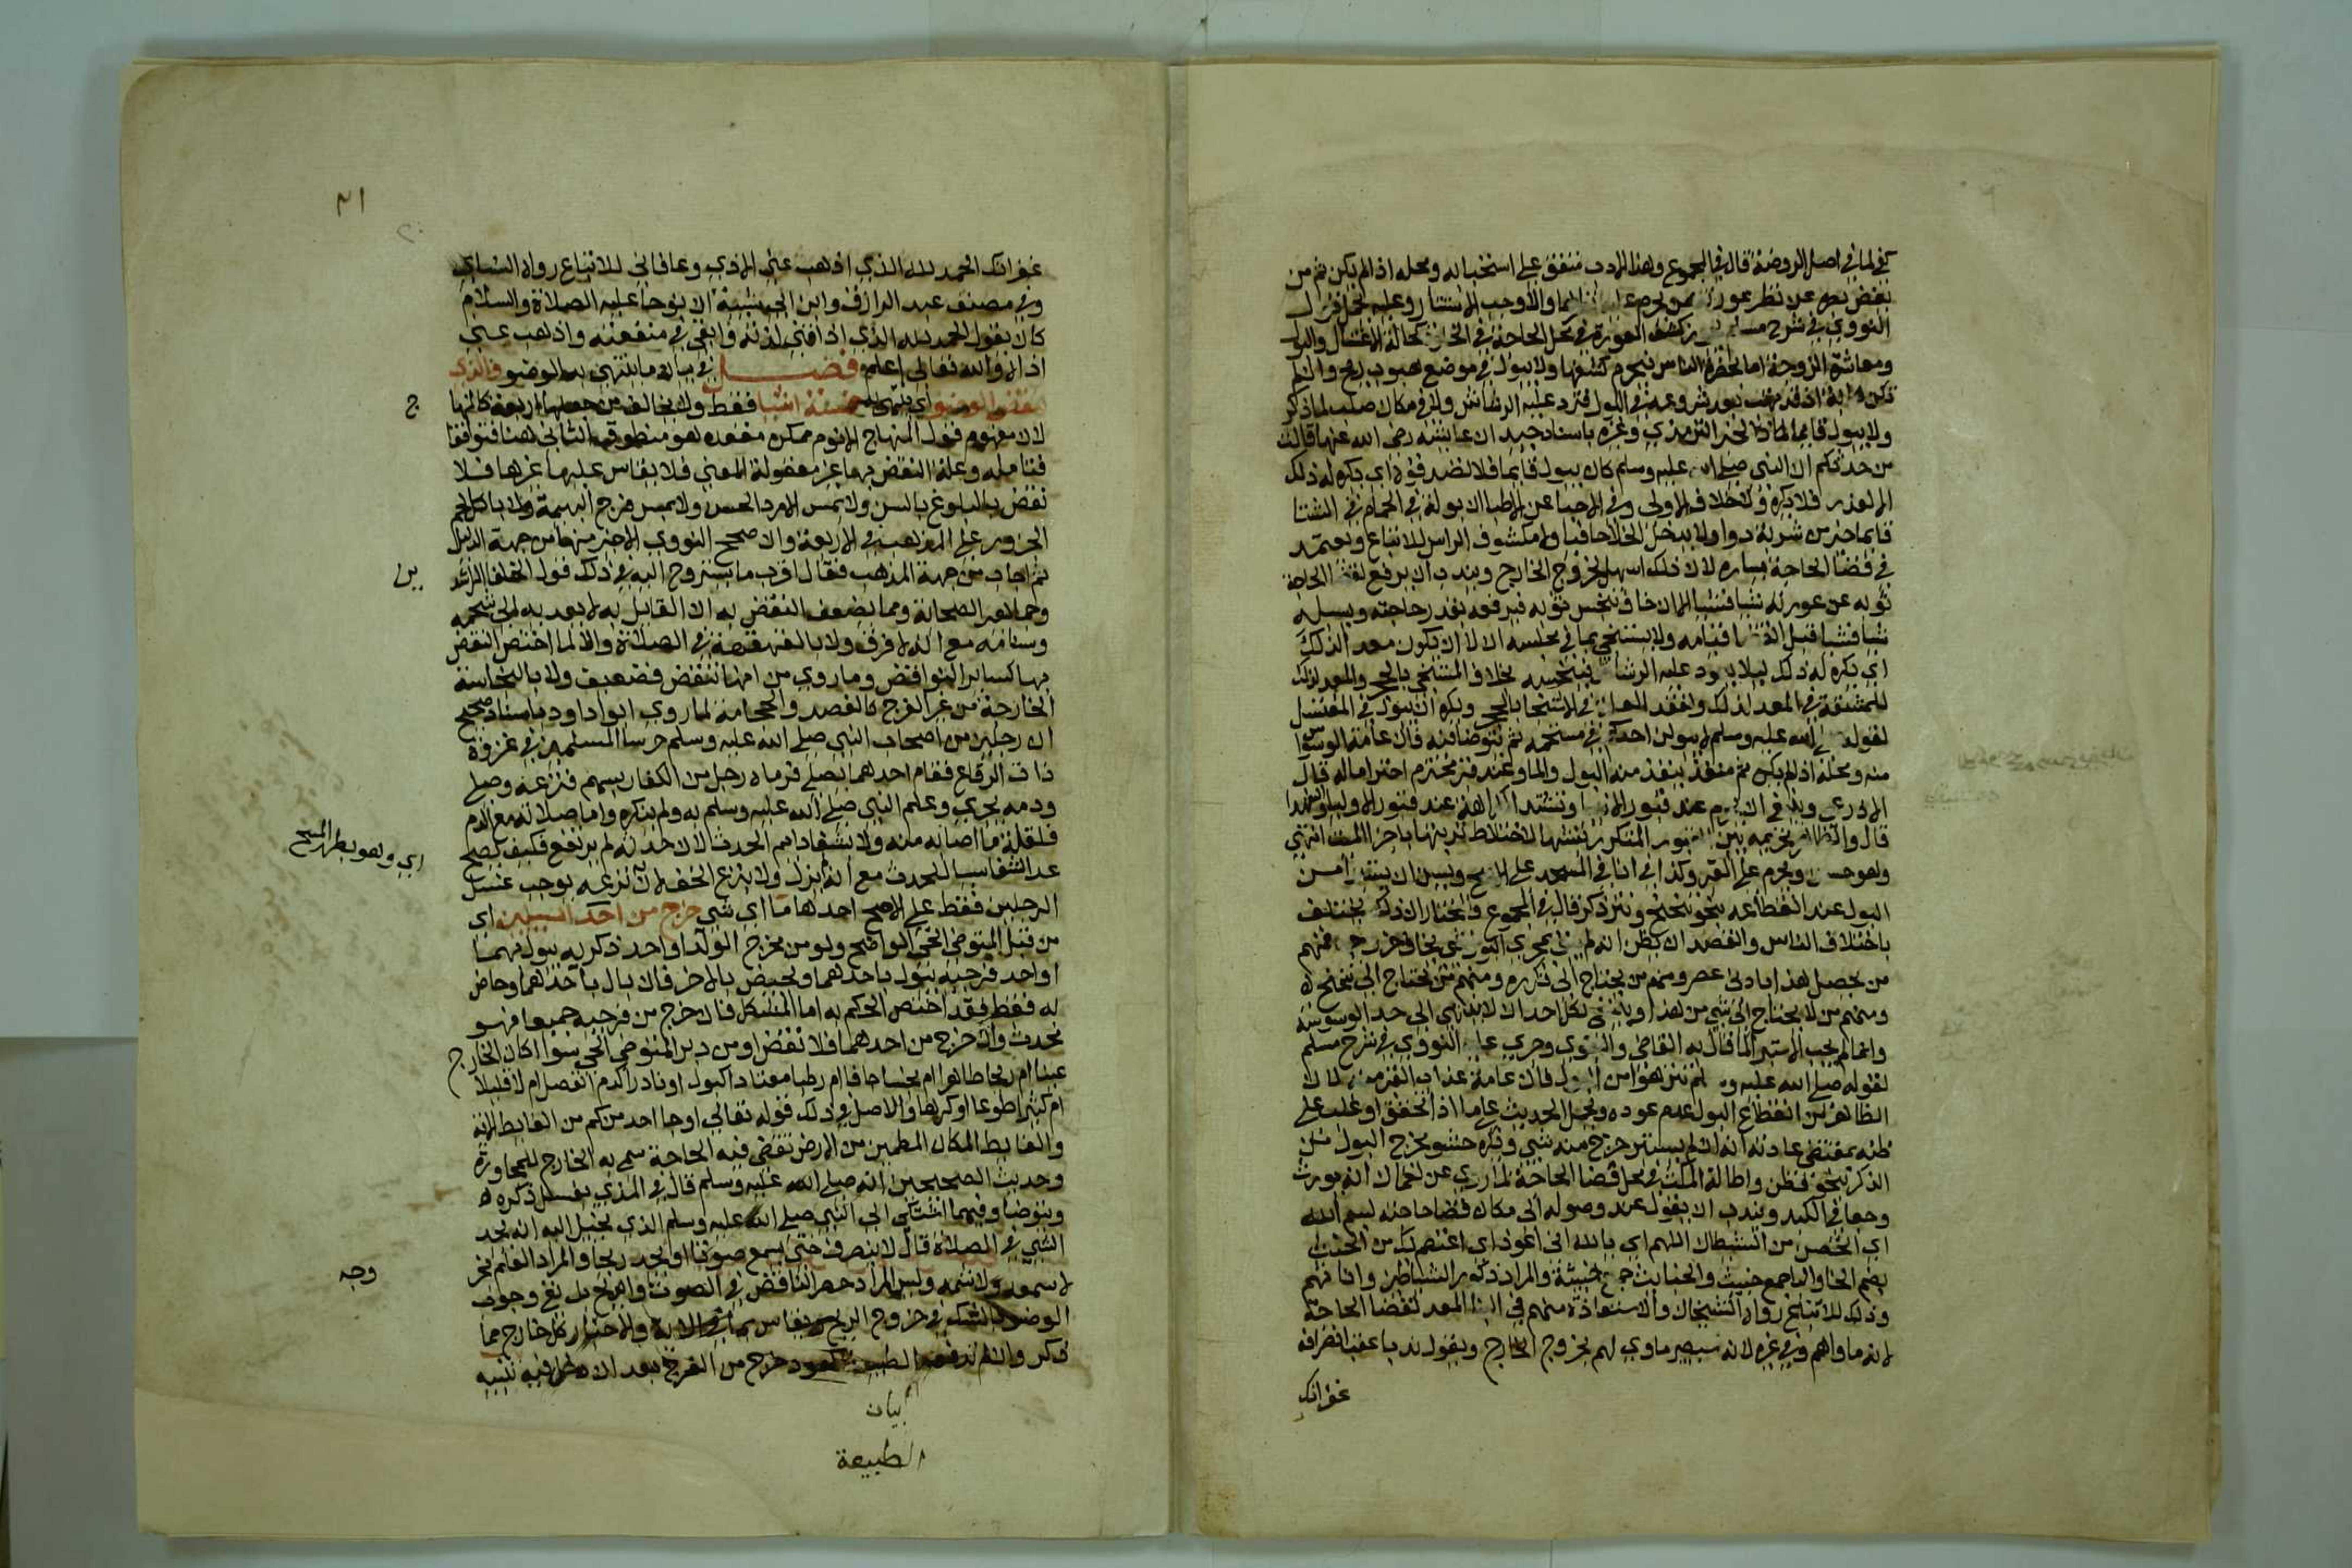 كما في اصل الروضة قال في المجموع وهذا الادب متفق علي استحبابه ومحله اذا لم يكن ثم من
يغض بصره عن نظر عورته ممن يحرم عليه والاوجب الاستتار وعليه يحمل قول
النووي في شرح مسلم كشف العورة في محل الحاجة في الخلوة كحالة الاغتسال والبول
ومعاشرة الزوجة اما بحضرة الناس فيحرم كشفها ولا يبول في موضع هبوب ريح وان لم
تكن هابة اذ قد تهب بعد شروعه في البول فترد عليه الرشاش ولا في مكان صلب لما ذكر
ولا يبول قايما لما في خبر الترمذي وغيره باسناد جيد ان عايشة رضي الله عنها قالت
من حدثكم ان النبي صلي الله عليه وسلم كان يبول قايما فلا تصدقوه اي يكره له ذلك
الا لعذر فلا يكره ولا خلاف الاولي وفي الاحيا عن الاطبا ان بولة في الحمام في الشتا
قايما خير من شربة دوا ولا يدخل الخلا حافيا ولا مكشوف الراس للاتباع ويعتمد
في قضا الحاجة يساره لان ذلك اسهل لخروج الخارج ويندب ان يرفع لقضا الحاجة
ثوبه عن عورته شيا فشيا الا ان خاف تنجس ثوبه فيرفعه بقدر حاجته ويسبله
شيا فشيا قبل انتصابه ولا يستنجي بما في مجلسه الا ان يكون معدا لذلك
اي يكره له ذلك ليلا يعود عليه الرشاش فينجسه بخلاف المستنجي بالحجر والمعد لذلك
للمشقة في المعد لذلك ولفقد العلة في الاستنجا بالحجر ويكره ان يبول في المغتسل
لقوله صلي الله عليه وسلم لا يبولن احدكم في مستحمه ثم يتوضا فيه فان عامة الوسواس
منه ومحله اذا لم يكن ثم منفذ ينفذ منه البول والما وعند قبر محترم احتراما له قال
الاذرعي وينبغي ان يحرم عند قبور الانبيا وتشتد الكراهة عند قبور الاوليا والشهدا
قال والظاهر تحريمه بين القبور المتكرر نبشها لاختلاط تربتها باجزا الميت انتهي
وهو حسن ويحرم علي القبر وكذا في انا في المسجد علي الاصح ويسن ان يستبرا من
البول عند انقطاعه بنحو تنحنح ونتر ذكر قال في المجموع والمختار ان ذلك يختلف
باختلاف الناس والقصد ان يظن انه لم يبق بمجري البول شي يخاف خروجه فمنهم
من يحصل هذا بادني عصر ومنهم من يحتاج الي تكرره ومنهم من يحتاج الي تنحنح
ومنهم من لا يحتاج الي شي من هذا وينبغي لكل احد ان لا ينتهي الي حد الوسوسة
وانما لم يجب الاستبرا كما قال به القاضي والبغوي وجري عليه النووي في شرح مسلم
لقوله صلي الله عليه وسلم تنزهوا من البول فان عامة عذاب القبر منه لان
الظاهر من انقطاع البول عدم عوده ويحمل الحديث علي ما اذا تحقق او غلب علي
ظنه بمقتضي عادته انه ان لم يستبر خرج منه شي ويكره حشو مخرج البول من
الذكر بنحو قطن واطالة المكث في محل قضا الحاجة لما روي عن لقمان انه يورث
وجعا في الكبد ويندب ان يقول عند وصوله الي مكان قضا حاجته بسم الله
اي اتحصن من الشيطان اللهم اي يا الله اني اعوذ اي اعتصم بك من الخبث
بضم الخا والبا جمع خبيث والخبايث جمع خبيثة والمراد ذكور الشياطين واناثهم
وذلك للاتباع رواه الشيخان والاستعاذة منهم في البنا المعد لقضا الحاجة
لانه ماواهم وفي غيره لانه سيصير ماوي لهم بخروج الخارج ويقول ندبا عقب انصرافه
غفرانك
٣١
٢٠
غفرانك الحمد لله الذي اذهب عني الاذي وعافاني للاتباع رواه النساي
وفي مصنف عبد الرازق وابن ابي شيبة ان نوحا عليه الصلاة والسلام
كان يقول الحمد لله الذي اذاقني لذته وابقي في منفعته واذهب عني
اذاه والله تعالي اعلم فصل في بيان ما ينتهي به الوضو والذي
ينقض الوضو اي ينتهي به خمسة اشيا فقط ولا يخالف من جعلها اربعة كالمنهاج
لان مفهوم قول المنهاج الا نوم ممكن مقعده هو منطوق الثاني هنا فتوافقا
فتامله وعلة النقض بها غير معقولة المعني فلا يقاس عليها غيرها فلا
نقض بالبلوغ بالسن ولا بمس الامرد الحسن ولا بمس فرج البهيمة ولا باكل لحم
الجزور علي المذهب في الاربعة وان صحح النووي الاخير منها من جهة الدليل
ثم اجاب من جهة المذهب فقال اقرب ما يستروح اليه في ذلك قول الخلفا الراشدين
وجماهير الصحابة ومما يضعف النقض به ان القايل به لا يعديه الي شحمه
وسنامه مع انه لا فرق ولا بالقهقهة في الصلاة والا لما اختص النقض
بها كساير النواقض وما روي من انها تنقض فضعيف ولا بالنجاسة
الخارجة من غير الفرج كالفصد والحجامة لما روي ابو داود باسناد صحيح
ان رجلين من اصحاب النبي صلي الله عليه وسلم حرسا المسلمين في غزوة
ذات الرقاع فقام احدهما يصلي فرماه رجل من الكفار بسهم فنزعه وصلي
ودمه يجري وعلم النبي صلي الله عليه وسلم به ولم ينكره واما صلاته مع الدم
فلقلة ما اصابه منه ولا بشفا دايم الحدث لان حدثه لم يرتفع فكيف يصح
عد الشفا سببا للحدث مع انه لم يزل ولا بنزع الخف لان نزعه يوجب غسل
الرجلين فقط علي الاصح احدها ما اي شي خرج من احد السبيلين اي
من قبل المتوضي الحي الواضح ولو من مخرج الولد او احد ذكرين يبول بهما
او احد فرجين تبول باحدهما وتحيض بالاخر فان بال باحدهما وحاض
به فقط فقد اختص الحكم به اما المشكل فان خرج من فرجيه جميعا فهو
محدث وان خرج من احدهما فلا نقض او من دبر المتوضي الحي سوا اكان الخارج
عينا ام ريحا طاهرا ام نجسا جافا ام رطبا معتادا كبول او نادرا كدم انفصل ام لا قليلا
ام كثيرا طوعا او كرها والاصل في ذلك قوله تعالي او جا احد منكم من الغايط الاية
والغايط المكان المطمين من الارض تقضي فيه الحاجة سمي به الخارج للمجاورة
وحديث الصحيحين انه صلي الله عليه وسلم قال في المذي يغسل ذكره
ويتوضا وفيهما اشتكي الي النبي صلي الله عليه وسلم الذي يخيل اليه انه يجد
الشي في الصلاة قال لا ينصرف حتي يسمع صوتا او يجد ريحا والمراد العلم بخروجه
لا سمعه ولا شمه وليس المراد حصر الناقض في الصوت والريح بل نفي وجوب
الوضو بالشك في خروج الريح ويقاس بما في الاية والاخبار كل خارج مما
ذكر وان لم تدفعه الطبيعة كعود خرج من الفرج بعد ان دخل فيه تنبيه
بيان
الطبيعة
اي وهو بطهر المسح
وجه